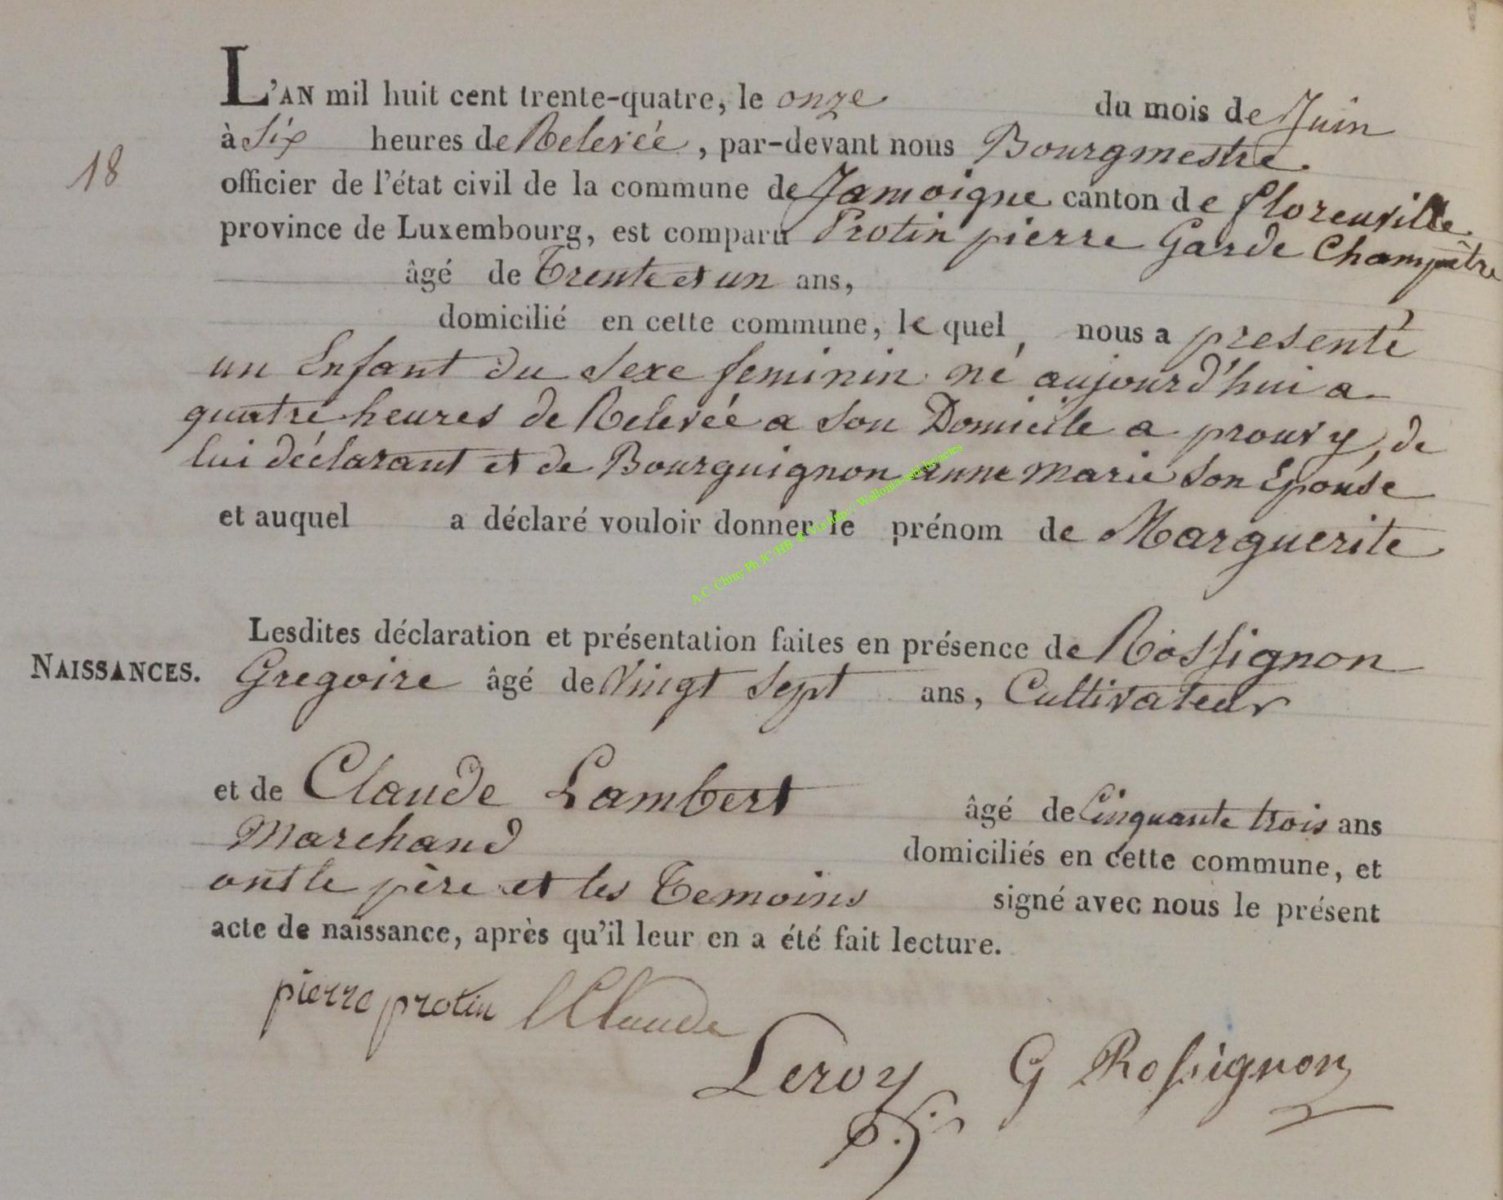 L'AN mil huit cent trente-quatre, le onze du mois de Juin
à Six heures de Relevée, par-devant nous Bourgmestre
18
officier de l'état civil de la commune de Jamoigne canton de florenville
province de Luxembourg, est comparu Protin pierre Garde Champêtre
âgé de Trente et un ans,
domicilié en cette commune, le quel, nous a presenté
un Enfant du Sexe feminin né aujourd'hui a
quatre heures de Relevée a Son Domicile a prouvy, de
lui déclarant et de Bourguignon anne marie Son Epouse
et auquel a déclaré vouloir donner le prénom de Marguerite
Lesdites déclaration et présentation faites en présence de Rossignon
NAISSANCES.
Gregoire âgé de Vingt Sept ans, Cultivateur
et de Claude Lambert âgé de Cinquante trois ans
Marchand domiciliés en cette commune, et
ont le père et les Temoins signé avec nous le présent
acte de naissance, après qu'il leur en a été fait lecture.
pierre protin LClaude
Leroy G Rossignon